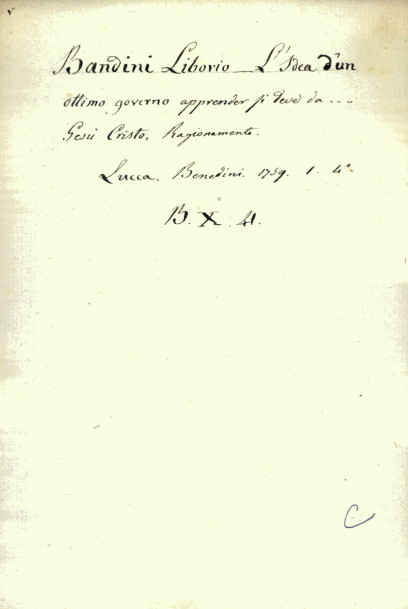 Bandini Liborio _ L'Idea d'un
ottimo governo apprender si deve da ....
Gesù Cristo, Ragionamento.
Lucca. Benedini. 1759. 1. 4°.
B. X. 41.
C